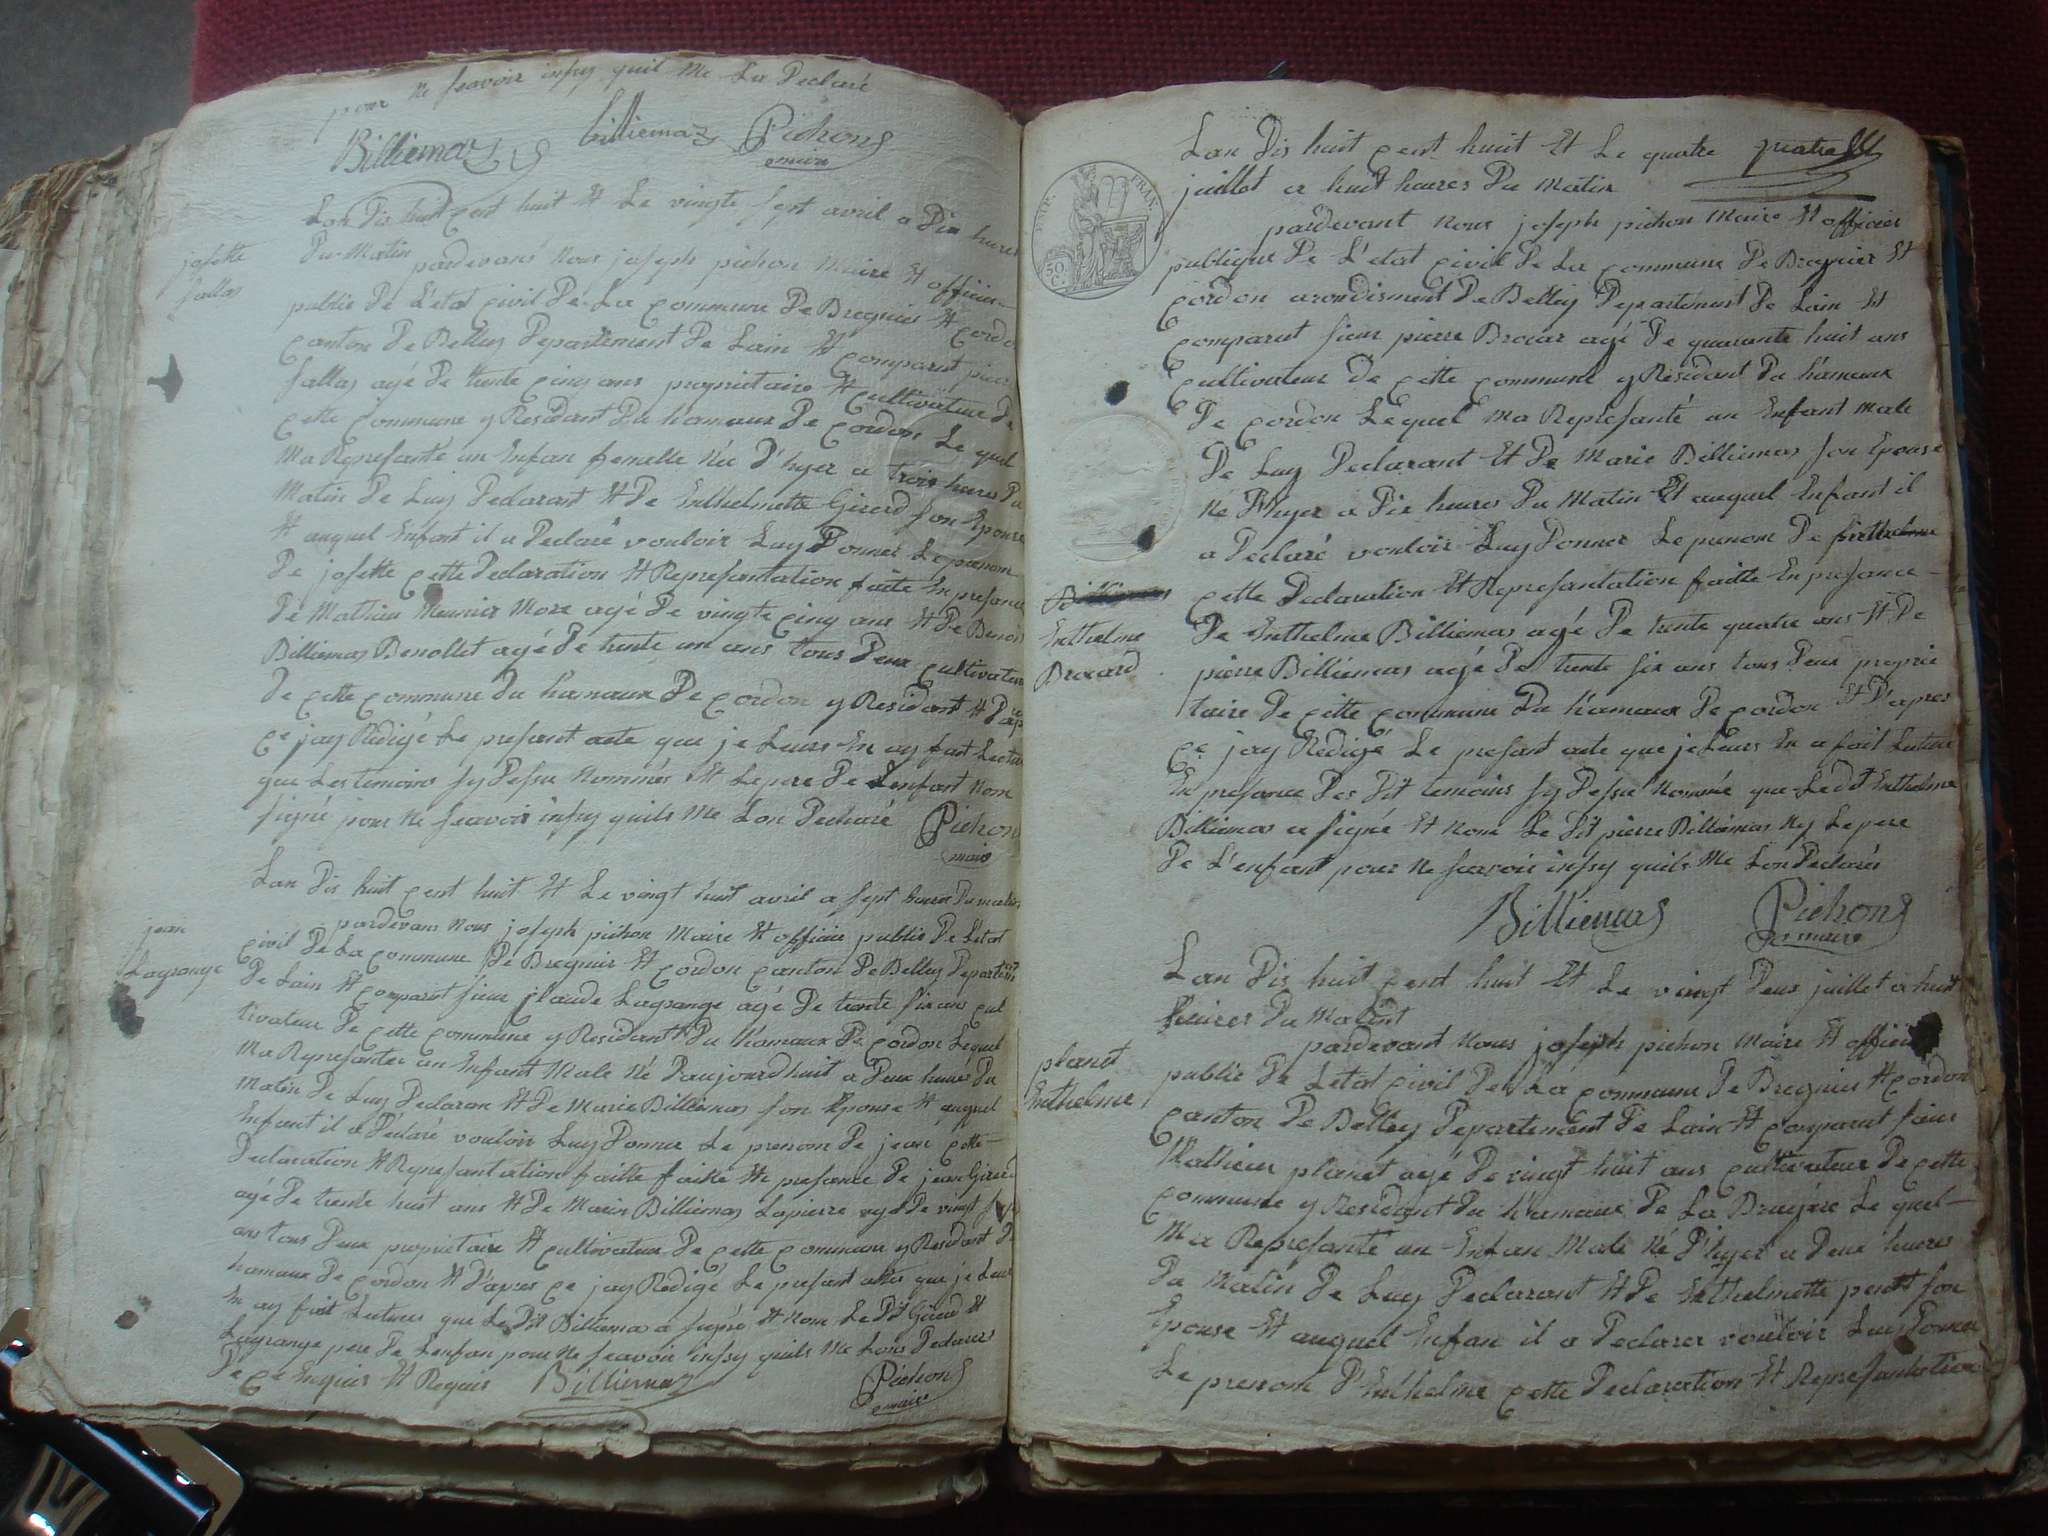 pour ne scavoir insy quil me La Declaré
Billiemaz billiemaz Pichon
maire
Lan Dis huit cent huit Et Le vingte sept avril a Dix hures
Du Matin
josette
fallas
pardevans nous joseph pichon Maire Et officier
public De L'état civil De La commune De Bregnies Et cordo
canton De Belley Departement De Lain Et comparut pierre
fallas agé De trente cinq ans proprietaire Et cultivateur De
cette commune y Residant Du hameaux De cordon Le quel
Ma Represanté un Enfan femelle Née D'hyer a trois hures Du
Matin De Luy Declarant Et De Enthelmette Girerd son Epouse
Et auquel Enfant il a Declaré vouloir Luy Donner Le prenom
De josette cette Declaration Et Represantation faite En presance
De Mathieu Meunier More agé De vingte cinq ans Et De Benoi
Billiemas Benollet agé De trente un ans tous Deux cultivateur
De cette commune Du hameaux De cordon y Residant Et D'apre
ce jay Rédigé Le presant acte que je Leurs En ay fait Lectur
que Les temoins sy Dessu Nommés Et Le pere De L'enfant Nom
signé pour Ne scavoir insy quils Me Lon Declaré Pichon
maire
Lan Dis huit cent huit Et Le vingt huit avril a sept heures Du matin
jean
Lagrange
pardevans Nous joseph pichon Maire Et officie public De L'etat
civil De La commune De Bregnies Et cordon canton De Belley Departem
De Lain Et comparut sieur jlaude Lagrange agé De trente six ans cul
tivateur De cette commune y Residant Du hameaux De cordon Lequel
Ma Represanter un Enfant Male Né Daujourdhuit a Deux hures Du
Matin De Luy Declaran Et De Marie Billiemas son Epouse Et auquel
Enfant il a Déclaré vouloir Luy Donner Le prenom De jean cette
Declaration Et Represantation faitte faitte En presance De jean Girerd
agé De trente huit ans Et De Marin Billiemas Lapierre agé De vingt sept
ans tous Deux proprietaire Et cultivateur De cette commune y Residant D
hameaux De cordon Et D'apres ce jay Rédigé Le presant actes que je Leur
En ay fait Lectures que Le Dit Billiema a signé Et Nom Le Dit Girerd Et
Lagrange pere De Lenfan pour Ne scavoir insy quils Me Lons Declarer
De ce Enquis Et Requis Billiemaz Pichon
maire
Lan Dis huit cent huit Et Le quatre quatre
juillet a huit heures Du Matin
EMP. FRAN.
50
C.
pardevant Nous joseph pichon Maire Et officier
publique De L'etat civil De La commune De Bregnier Et
cordon arondisment De Belley Departement De Lain Et
comparut sieur pierre Brocar agé De quarante huit ans
cultivateur De cette commune y Résidant Du hameaux
De cordon Lequel Ma Represanté un Enfant Male
De Luy Declarant Et De Marie Billiemas son Epouse
Né D'hyer a Dix heures Du Matin Et auquel Enfant il
a Declaré vouloir Luy Donner Le prenom De Enthelme
Enthelme
Brocard
cette Declaration Et Represantation faitte En presance
De Enthelme Billiemas agé De trente quatre ans Et De
pierre Billiemas agé De trente six ans tous Deux proprie
taire De cette commune Du hameaux De cordon Et D'apres
ce jay Rédigé Le presant acte que je Leurs En a fait Lecture
En presance Des Dit temoins sy Dessu Nommé que Le dit Enthelme
Billiemas a signée Et Nom Le Dit pierre Billiemas Ny Le pere
De L'enfant pour Ne scavoir insy quils Me Lon Declarés
Billiemas Pichon
maire
Lan Dis huit cent huit Et Le vingt Deux juillet a huit
heures Du Matint
planet
Enthelme
pardevant Nous joseph pichon Maire Et officie
public De L'etat civil De La commune De Bregnies Et cordon
canton De Belley Departement De Lain Et comparut sieur
Mathieu planet agé De vingt huit ans cultivateur De cette
commune y Résidant Du hameaux De La Bruyére Le quel
Ma Represanté un Enfan Male Né D'hyer a Deux heures
Du Matin De Luy Declarant Et De Enthelmette son
Epouse Et auquel Enfan il a Declarer vouloir Luy Donner
Le prenom D'Enthelme cette Declaration Et Represantation